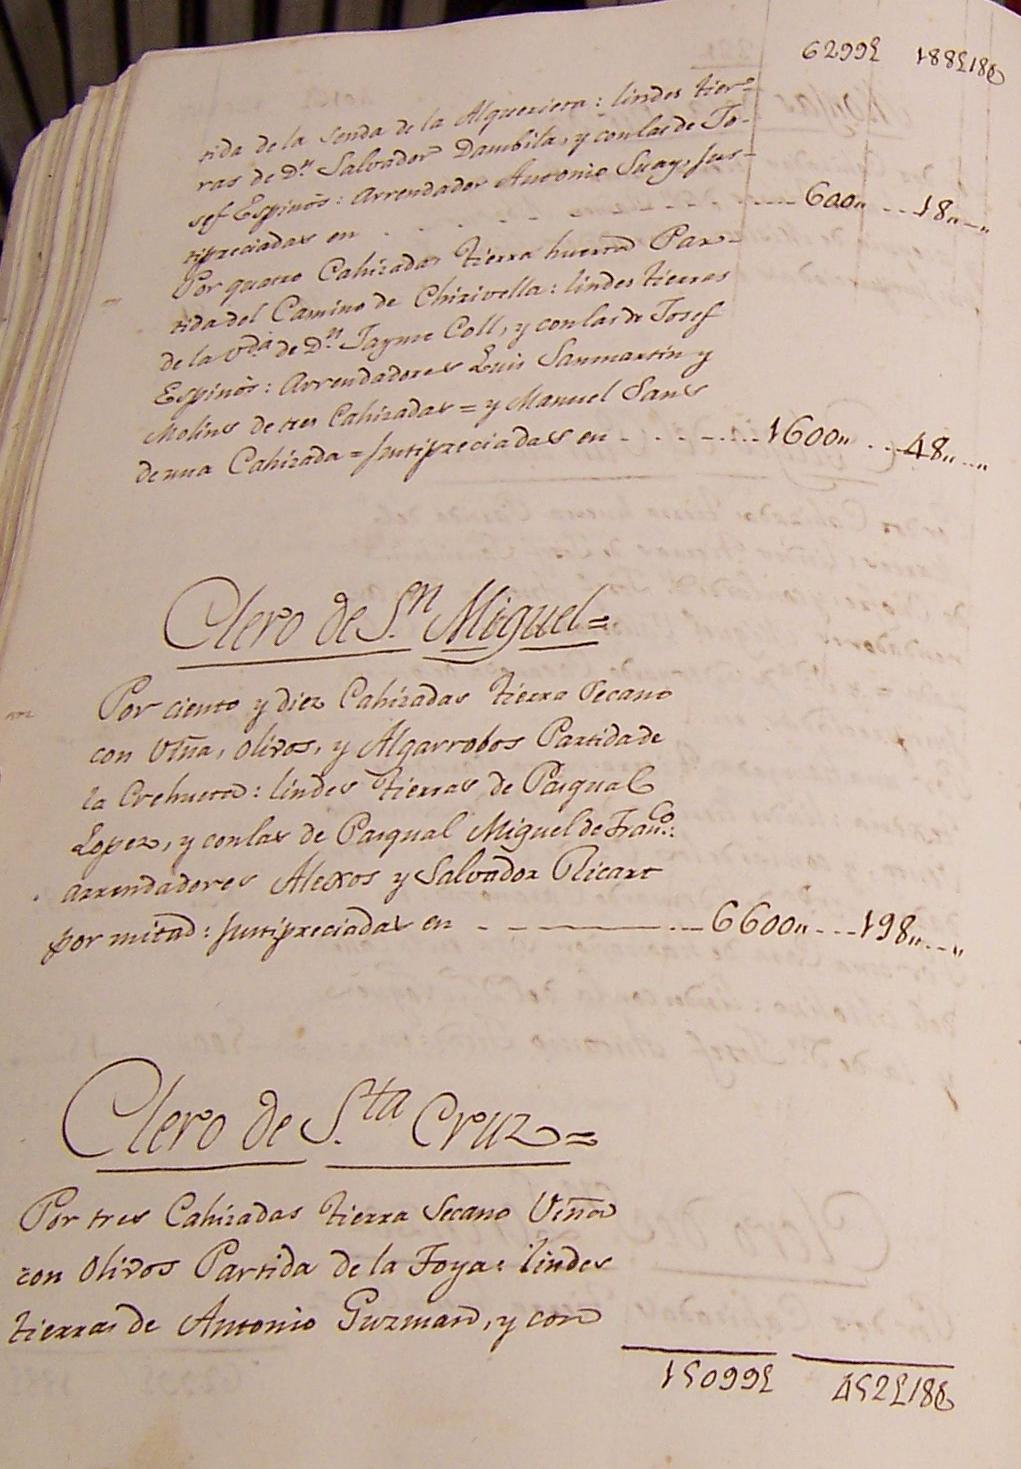 6299£ 188£18₰
tida de la Senda de la Alqueriera: lindes tier-
ras de D.n Salvador Dambila, y con las de Jo-
sef Espinòs: Arrendador Antonio Suay, Jus-
tipreciadas en . . . . . . . . . 600„ . . . 18„ . . „
Por quatro Cahizadas tierra huerta Par-
tida del Camino de Chirivella: lindes tierras
de la V.da de D.n Jayme Coll, y con las de Josef
Espinòs: Arrendadores Luis Sanmartin y
Molins de tres Cahizadas = y Manuel Sans
de una Cahizada = Justipreciadas en . . . . . . . 1600„ . . . 48„ . . . „
Clero de S.n Miguel =
Por ciento y diez Cahizadas tierra Secano
con Viña, olivos, y Algarrobos Partida de
la Crehueta: lindes tierras de Pasqual
Lopez, y con las de Pasqual Miguel de Fran.co:
arrendadores Alexos y Salvador Ricart
por mitad: Justipreciadas en . . . . . . 6600„ . . . 198„ . . . „
Clero de S.ta Cruz =
Por tres Cahizadas tierra Secano Viña
con Olivos Partida de la Foya: lindes
tierras de Antonio Guzman, y con
15099£ 452£18₰